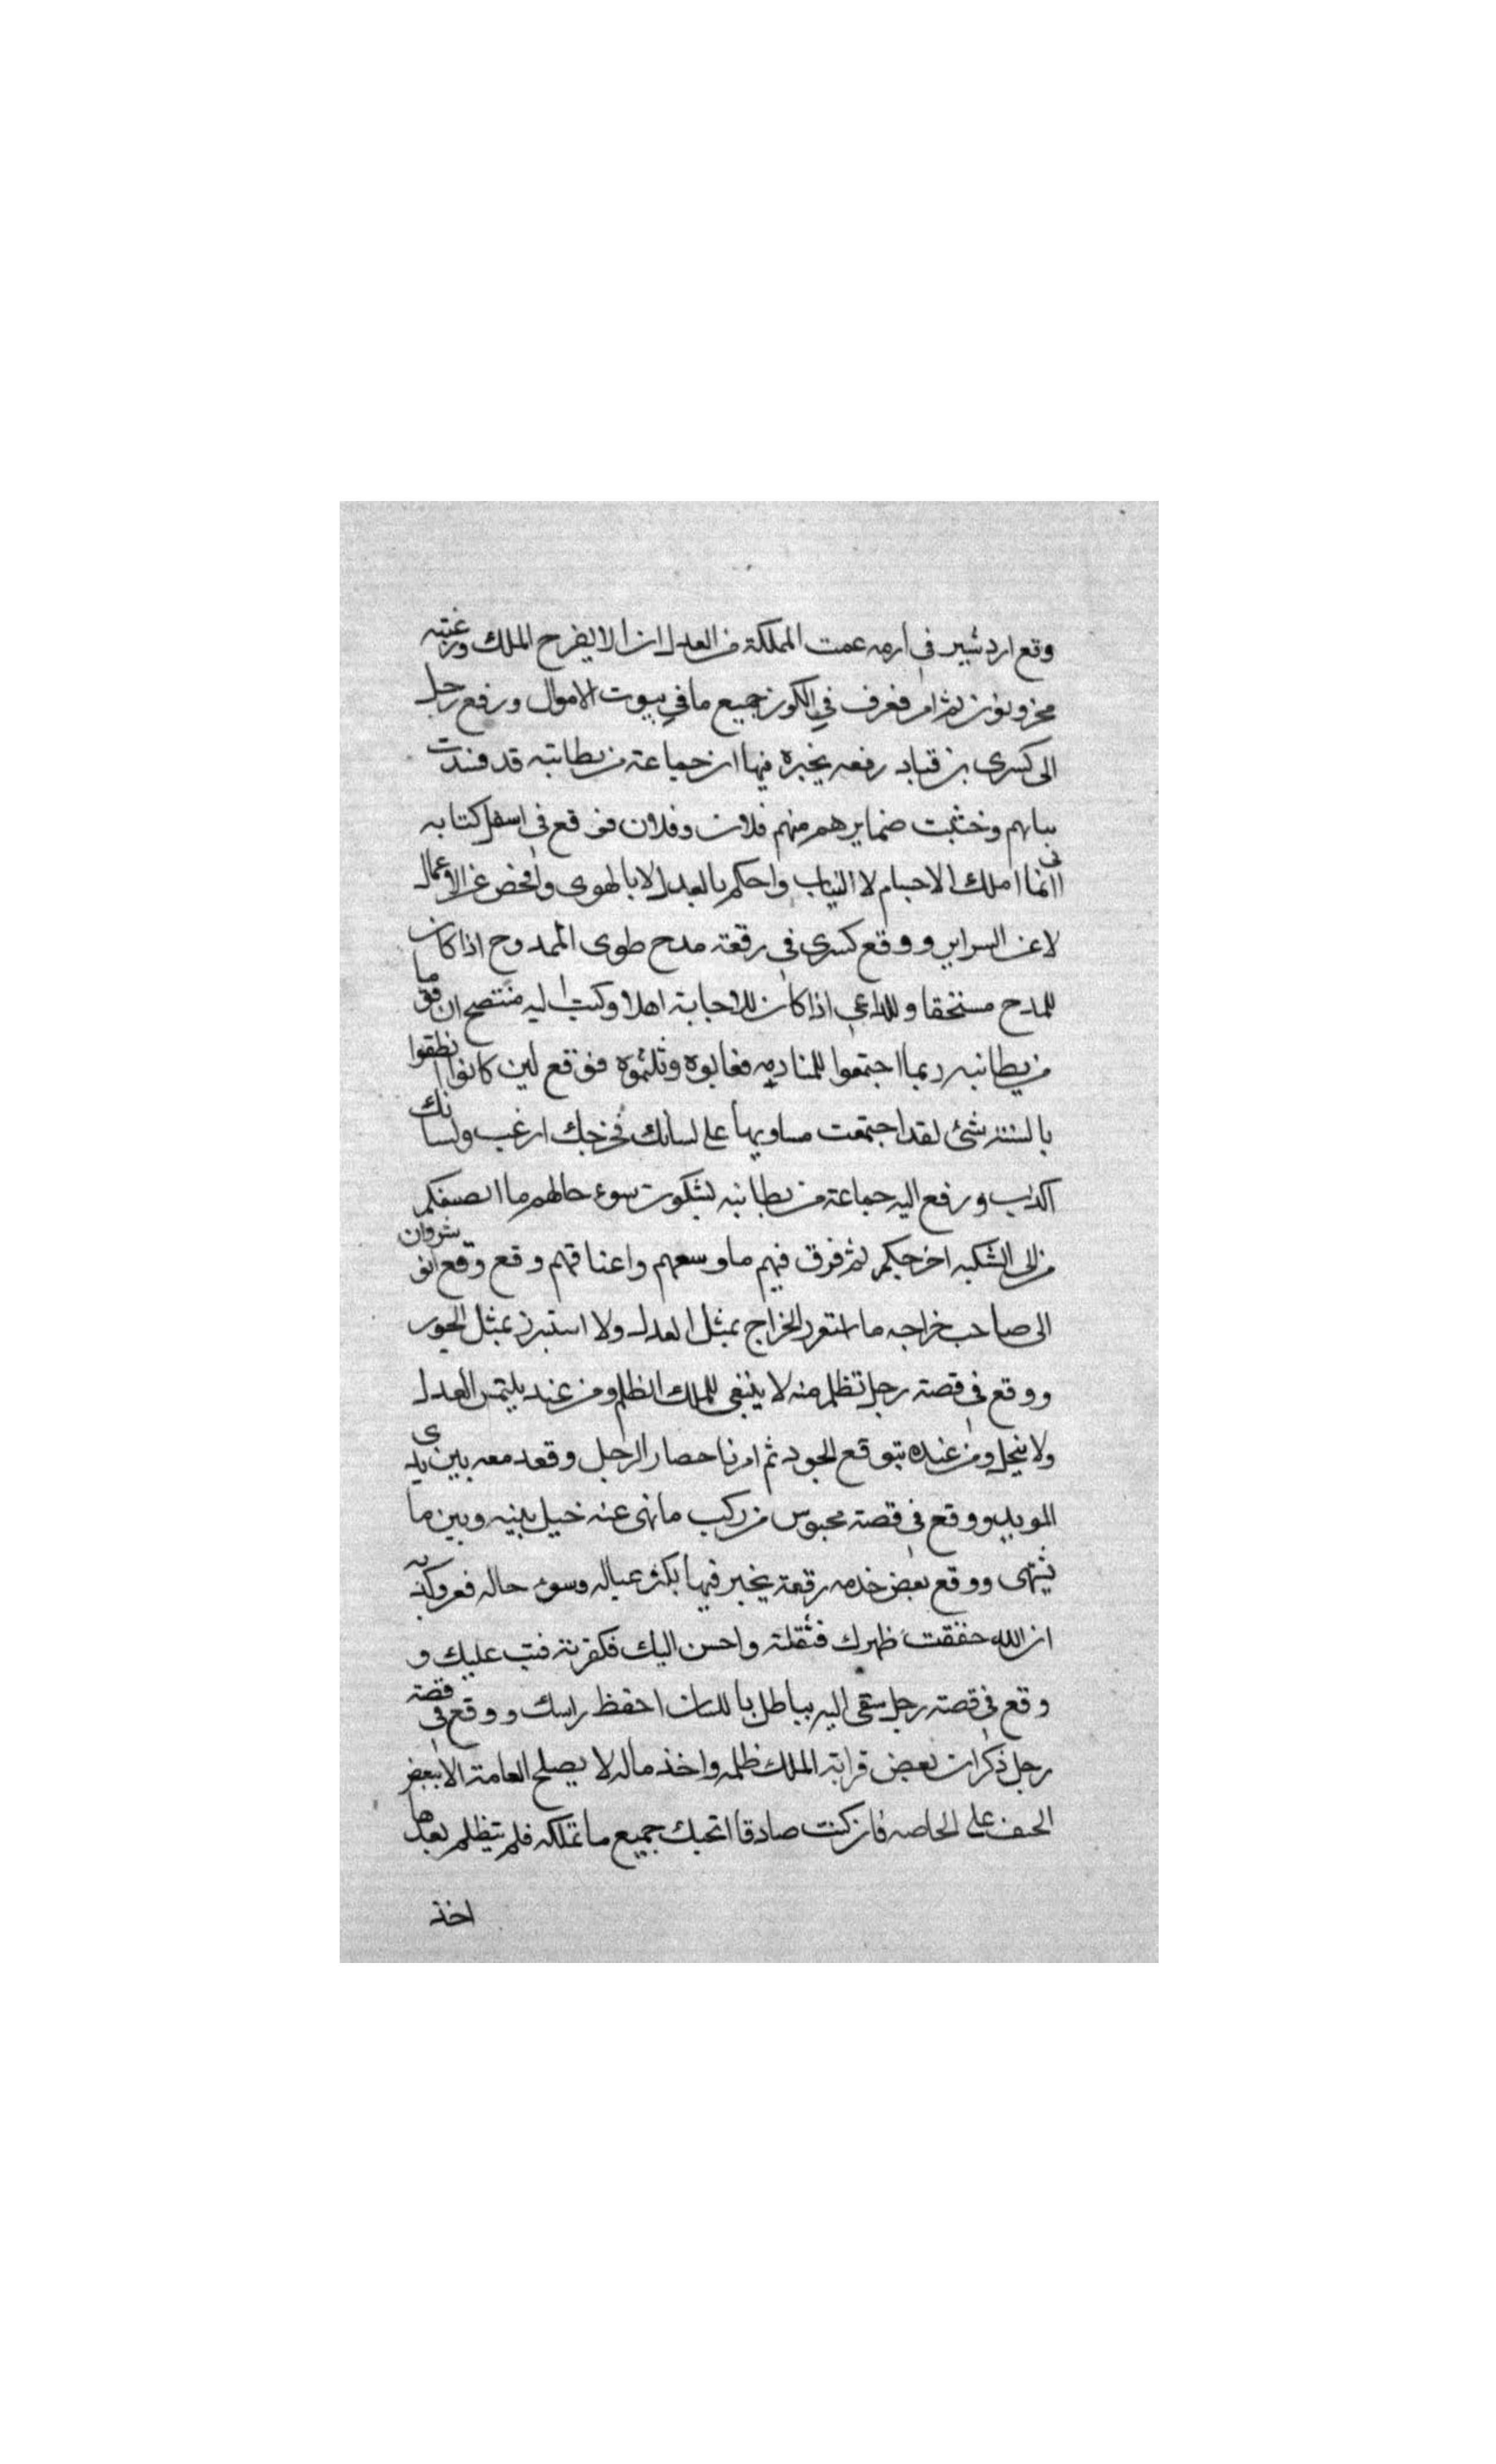 وقع اردشير في ازمه عمت المملكة من العدل ان لا يفرح الملك ورعيته
محزونون ثم امر ففرق في الكور جميع ما في بيوت الاموال ورفع رجل
الى كسرى بن قباد رفعه يخبره فيها ان جماعة من بطانته قد فسدت
نياتهم وخبثت ضمايرهم منهم فلان وفلان فوقع في اسفل كتابه
انني انما املك الاجسام لا النيات واحكم بالعدل لا بالهوى وافحص عن الاعمال
لا عن السراير ووقع كسرى في رقعة مدح طوى الممدوح اذا كان
للمدح مستحقا وللداعي اذا كان للاجابة اهلا وكتب اليه منتصح ان قوما
من بطانته ربما اجتمعوا للمنادمه فعابوه وثلموه فوقع لين كانوا نطقوا
بالسنة شئ لقد اجتمعت مساويها على لسانك فجرحك ارغب ولسانك
اكذب ورفع اليه جماعة من بطانته يشكون سوء حالهم ما انصفكم
من الى الشكيه احرجكم ثم فرق فيهم ما وسعهم واعناقهم وقع وقع انو شروان
الى صاحب خراجه ما استغرر الخراج بمثل العدل ولا استبرز بمثل الجور
ووقع في قصة رجل تظلم منه لا ينبغي للملك الظلم ومن عنده يلتمس العدل
ولا يبخل ومن عنده يتوقع الجود ثم امر باحضار الرجل وقعد معه بين يدى
الموبد ووقع في قصة محبوس من ركب ما نهى عنه حيل بينه وبين ما
يشتهى ووقع بعض خدمه رقعة يخبر فيها بكثر عياله وسوء حاله فعرو كذبه
ان الله خففت ظهرك فثقلته واحسن اليك فكفرته فتب عليك و
وقع في قصة رجل سعى اليه بباطل باللسان احفظ راسك ووقع في قصة
رجل ذكر ان بعض قرابة الملك ظلمه واخذ ماله لا يصلح العامة الا ببعض
الحيف على الخاصه فان كنت صادقا اتحبك جميع ما تملكه فلم يتظلم بعدها
اخذ